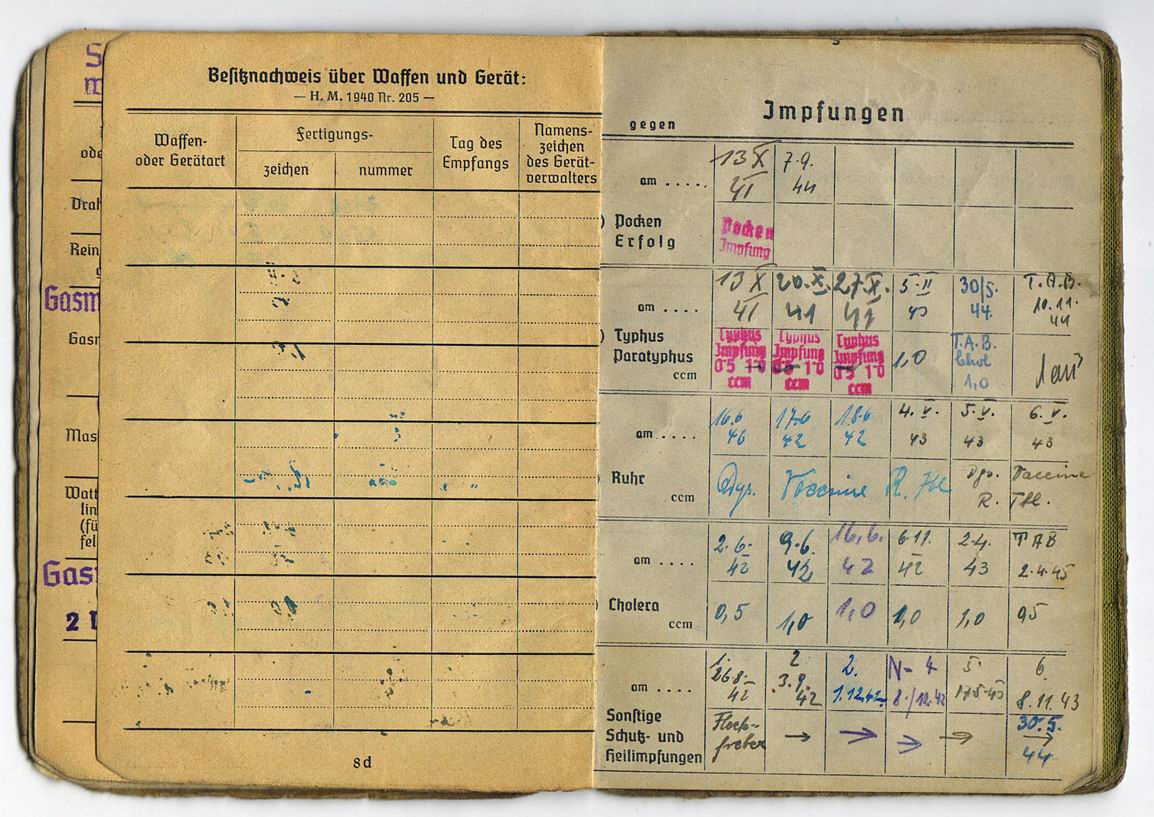 Besitznachweis über Waffen und Gerät:
— H. M. 1940 Nr. 205 —
Waffen-
oder Gerätart
Fertigungs-
zeichen
nummer
Tag des
Empfangs
Namens-
zeichen
des Gerät-
verwalters
8d
Gasm
Gasm
Mas
2
Impfungen
gegen
am .....
13 X 41
7.9. 44
) Pocken
Erfolg
Pocken
Impfung
am ....
13 X 41
20. X. 41
27. X. 41
5. II 43
30/5. 44.
T.A.B. 10.11. 44
) Typhus
Paratyphus
ccm
Typhus Impfung 0'5 1'0 ccm
Typhus Impfung 0'5 1'0 ccm
Typhus Impfung 0'5 1'0 ccm
1,0
T.A.B. 1,0
am ....
16.6
17.6 42
18.6 42
4. V. 43
5. V. 43
6. V. 43
Ruhr
ccm
Vaccine
R.
R.
Vaccine
am ....
2.6. 42
9.6. 42
16.6. 42
6.11. 42
2.4. 43
TAB 2.4.45
) Cholera
ccm
0,5
1,0
1,0
1,0
1,0
am ....
1. 26.8. 42
2 3.9. 42
2. 1.12.42
5.
6. 8.11.43
Sonstige
Schutz- und
Heilimpfungen
Fleck-
fieber
→
→
→
→
30.5. → 44